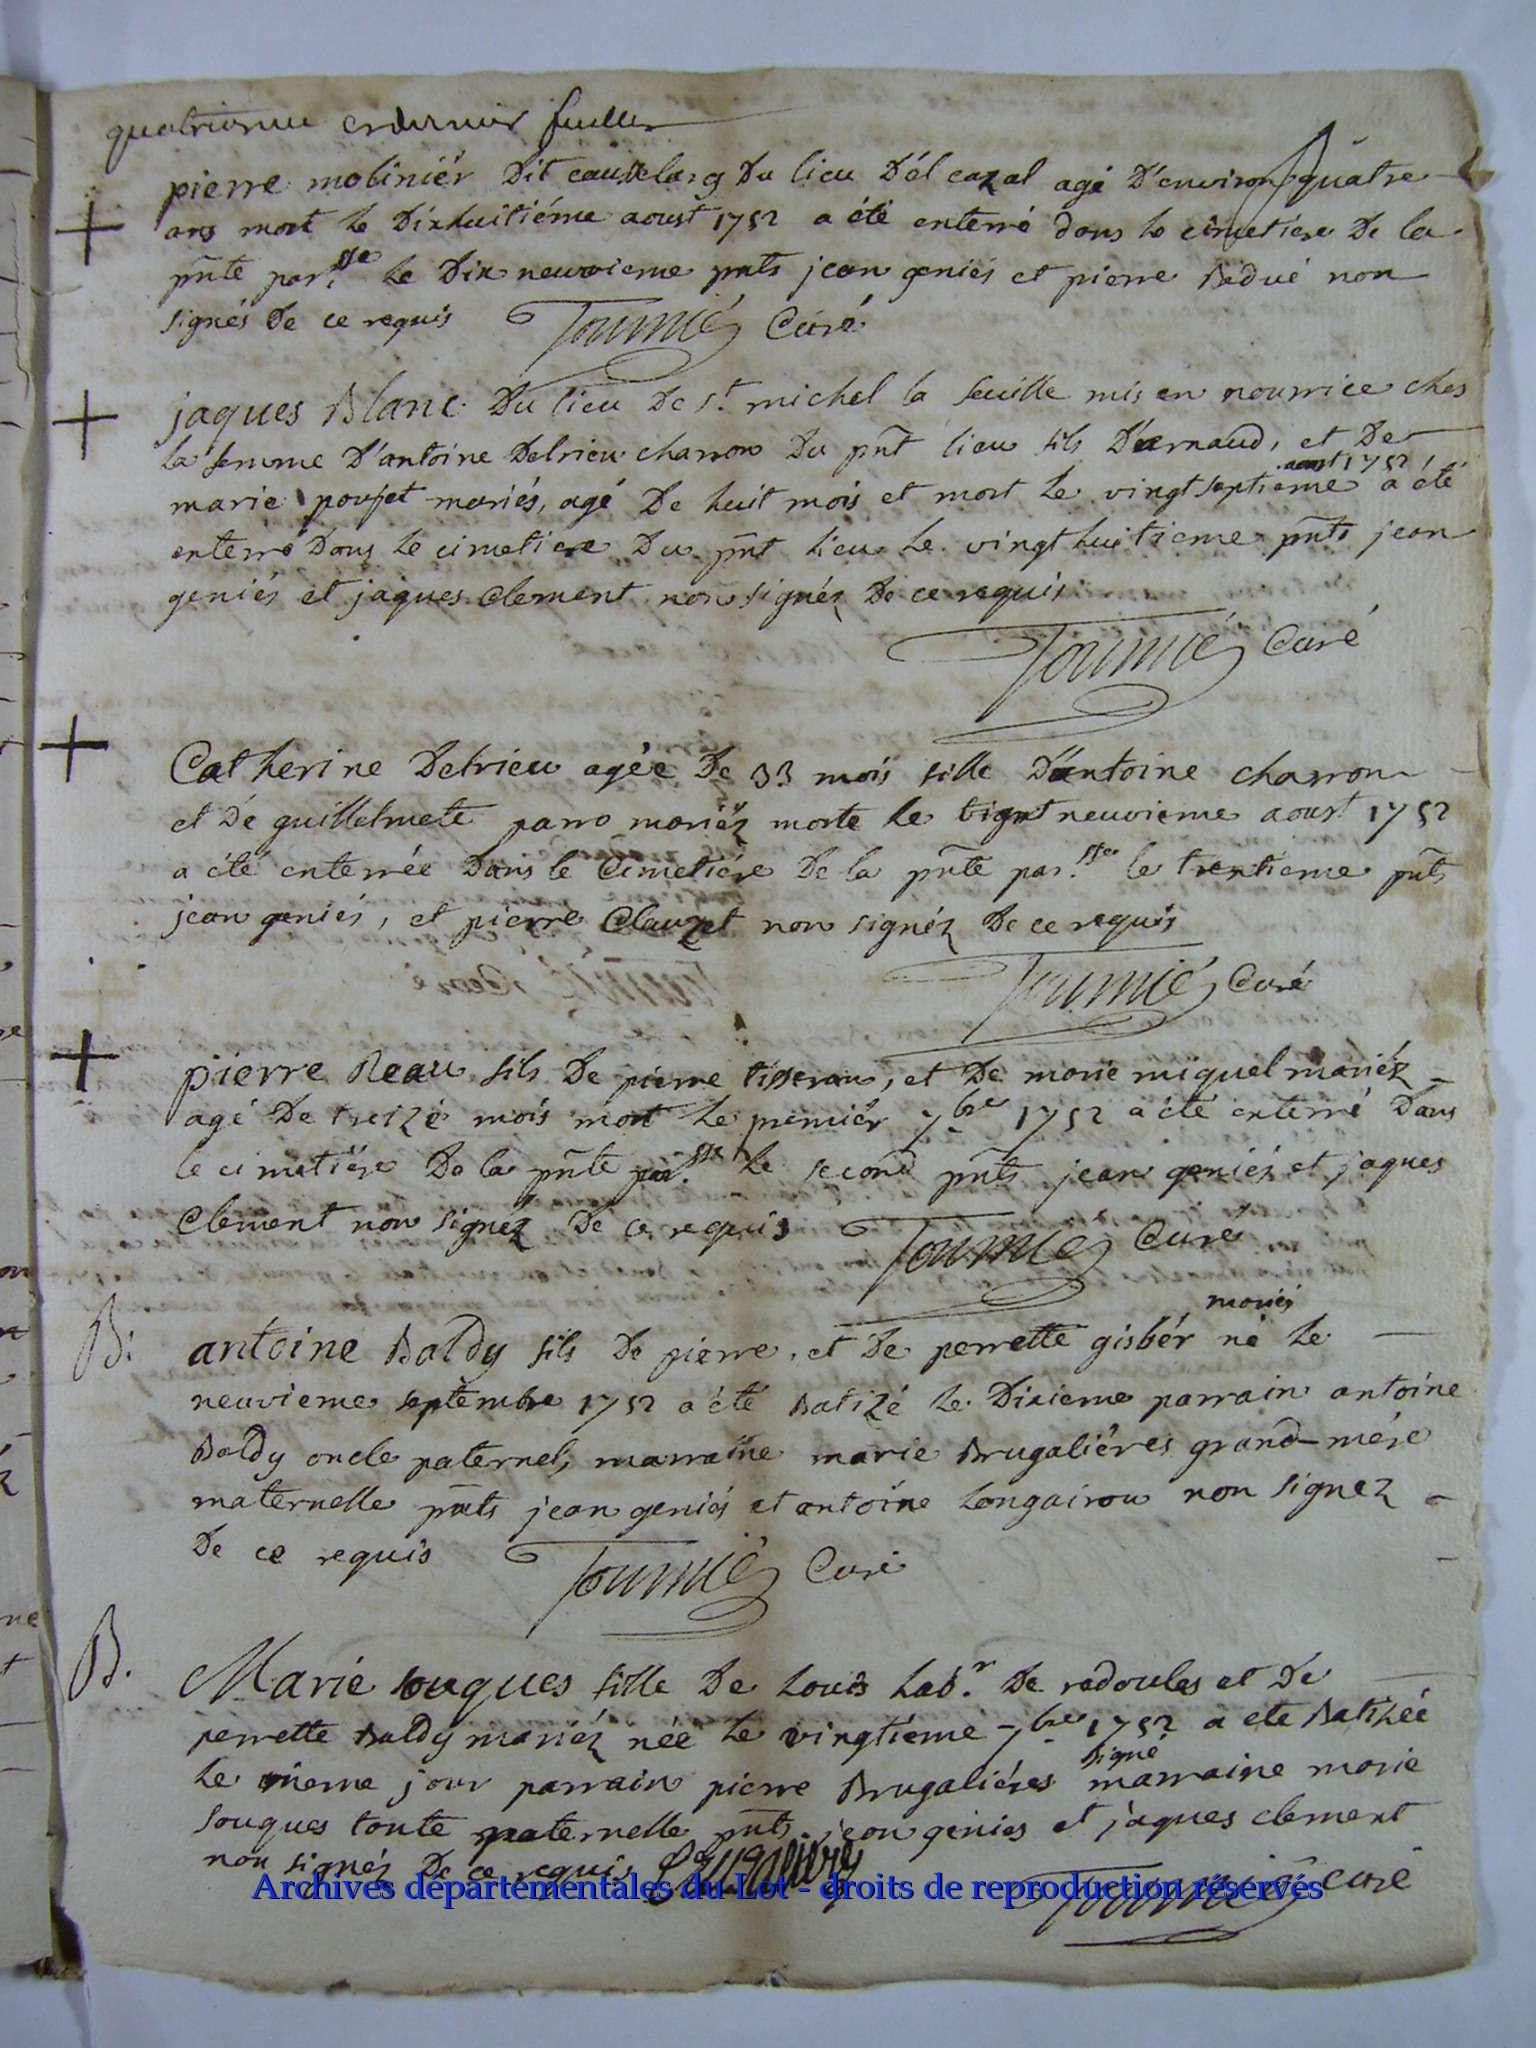 quatrieme et dernier feuillet
pierre moliniér Dit causselarg Du lieu D'él cazal agé D'environ quatre
ans mort le Dixhuitiéme aoust 1752 a été enterré dans le cimetiere De la
pñte par.sse le Dix neuvieme pñts jean geniés et pierre Badué non
signés De ce requis Tournié Curé
+ jaques Blanc Du lieu De s.t michel la feuille mis en nourrice ches
la femme D'antoine Delrieu charron Du pñt lieu fils D'arnaud, et De
marie poujet mariés, agé De huit mois et mort le vingtseptieme aoust 1752 a été
enterré Dans le cimetiere Du pñt lieu le vingt huitieme pñts jean
geniés et jaques Clement non signéz De ce requis
Tournié Curé
+ Catherine Delrieu agée De 33 mois fille D'antoine charron
et De guillelmete parro mariéz morte le vignt neuvieme aoust 1752
a été enterrée Dans le Cimetiére De la pñte par.sse le trentieme pñts
jean geniés, et pierre Clauzet non signéz De ce requis
Tournié Curé
+ pierre Reau fils De pierre tisseran, et De marie miquel mariéz
agé De treizé mois mort le premiér 7bre 1752 a été enterré Dans
le cimetiére De la pñte par.sse le second pñts jean geniéz et jaques
Clement non signéz De ce requis Tournié Curé
B. antoine Baldy fils De pierre, et De perrette gisbér mariés né le
neuvieme septembre 1752 a été Batizé le Dixieme parrain antoine
Baldy oncle paternel, marraine marie Brugaliéres grand-mére
maternelle pñts jean geniés et antoine Longairou non signez
De ce requis Tournié Curé
B. Marie souques fille De Louis Lab.r De radoules et De
perrette Baldy mariéz née le vingtiéme 7bre 1752 a eté Batizéé
le meme jour parrain pierre Brugaliéres signé marraine marie
souques tante paternelle pñts jean genies et jaques clement
non signéz De ce requis Brugalieres Tournié curé
Archives départementales du Lot - droits de reproduction réservés